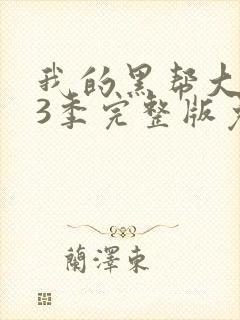 我的黑帮大
3季完整版免
蘭澤東